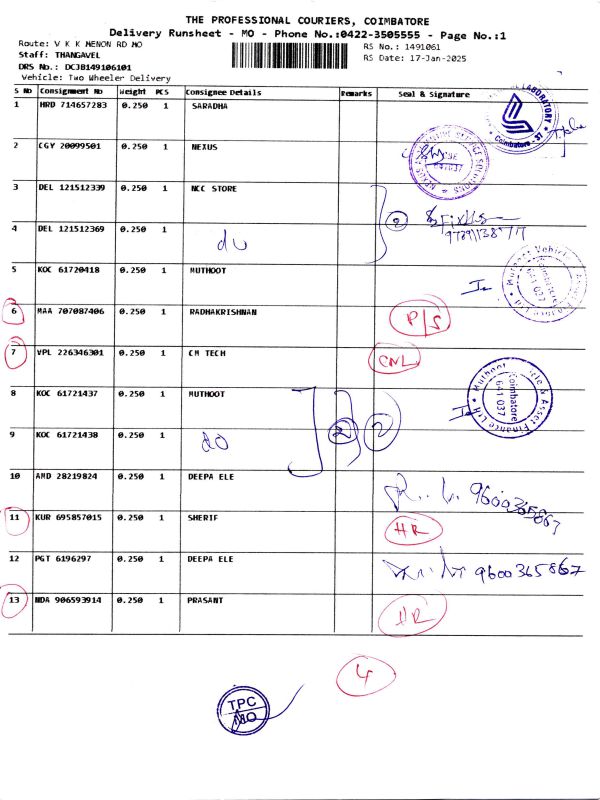 THE PROFESSIONAL COURIERS, COIMBATORE
Delivery Runsheet - MO - Phone No.:0422-3505555 - Page No.:1
Route: V K K MENON RD MO
RS No.: 1491061
Staff: THANGAVEL
RS Date: 17-Jan-2025
DRS No.: DCJB149106101
Vehicle: Two Wheeler Delivery
S No Consignment No Weight PCS Consignee Details Remarks Seal & Signature
1 HRD 714657283 0.250 1 SARADHA
LABORATORY Coimbatore - 37
2 CGY 20099501 0.250 1 NEXUS
NEXUS SERVICE SOLUTIONS 641037
3 DEL 121512339 0.250 1 NCC STORE
2
4 DEL 121512369 0.250 1
do
5 KOC 61720418 0.250 1 MUTHOOT
Muthoot Vehicle & Asset Finance Ltd Coimbatore 641 037
6 MAA 707087406 0.250 1 RADHAKRISHNAN P/S
7 VPL 226346301 0.250 1 CM TECH CNL
8 KOC 61721437 0.250 1 MUTHOOT
Muthoot Vehicle & Asset Finance Ltd Coimbatore 641 037
2 2
9 KOC 61721438 0.250 1
do
10 AMD 28219824 0.250 1 DEEPA ELE
9600365867
11 KUR 695857015 0.250 1 SHERIF HR
12 PGT 6196297 0.250 1 DEEPA ELE 9600365867
13 NDA 906593914 0.250 1 PRASANT HR
4
TPC
MO